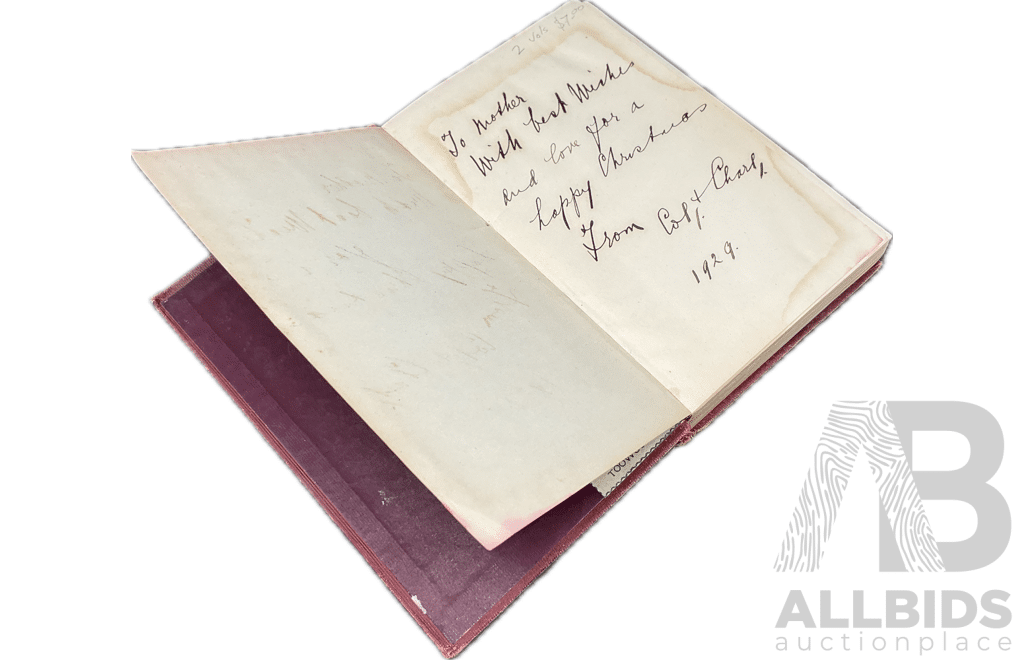 2 Vols $7.00
To Mother
With best Wishes
and love for a
happy Christmas
From Col. & Charly.
1929.
ALLBIDS
auctionplace